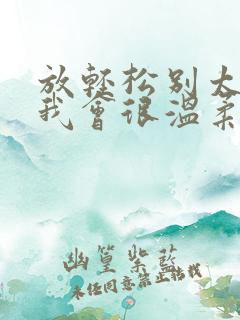 放轻松别太
我会很温柔
幽篁紫蓝
未经同意禁止转载